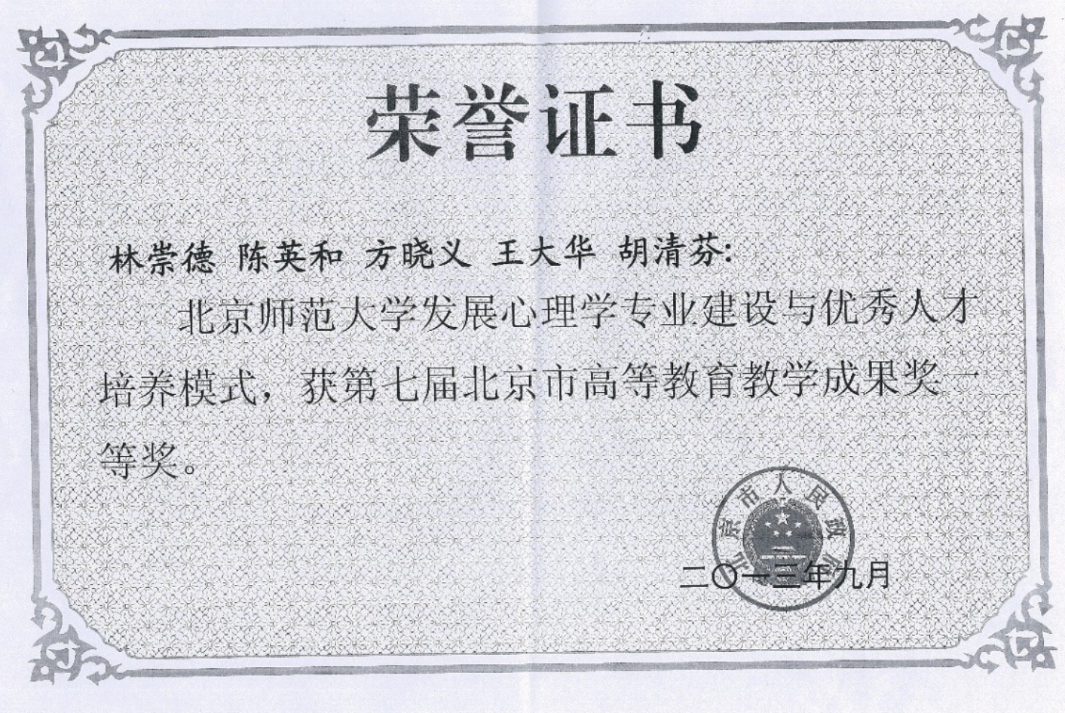 荣誉证书
林崇德 陈英和 方晓义 王大华 胡清芬:
北京师范大学发展心理学专业建设与优秀人才
培养模式，获第七届北京市高等教育教学成果奖一
等奖。
北京市人民政府
二〇一三年九月